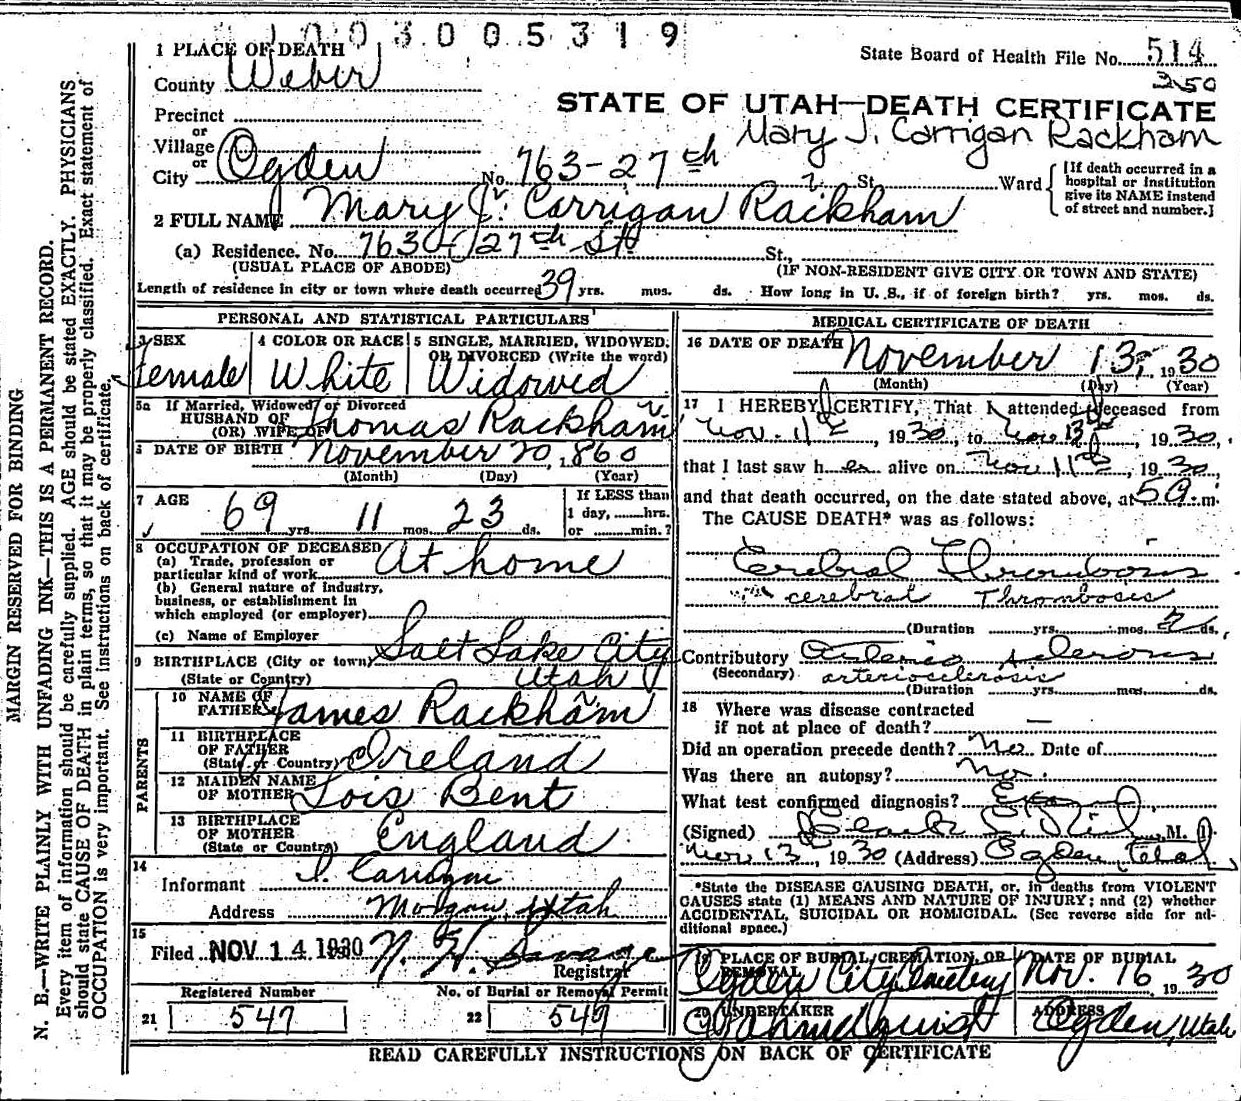 1003005319
1 PLACE OF DEATH
State Board of Health File No. 514
County Weber
350
STATE OF UTAH—DEATH CERTIFICATE
Precinct
Mary J. Carrigan Rackham
or
Village
or
City Ogden No. 763-27th St. Ward
[If death occurred in a
hospital or institution
give its NAME instead
of street and number.]
2 FULL NAME Mary J. Carrigan Rackham
(a) Residence. No. 763-27th St. St.,
(USUAL PLACE OF ABODE) (IF NON-RESIDENT GIVE CITY OR TOWN AND STATE)
Length of residence in city or town where death occurred 39 yrs. mos. ds. How long in U. S., if of foreign birth? yrs. mos. ds.
PERSONAL AND STATISTICAL PARTICULARS
3 SEX
Female
4 COLOR OR RACE
White
5 SINGLE, MARRIED, WIDOWED,
OR DIVORCED (Write the word)
Widowed
5a If Married, Widowed or Divorced
HUSBAND OF
(OR) WIFE OF Thomas Rackham
6 DATE OF BIRTH November 20, 1860
(Month) (Day) (Year)
7 AGE
69 yrs. 11 mos. 23 ds.
If LESS than
1 day, hrs.
or min.?
8 OCCUPATION OF DECEASED
(a) Trade, profession or
particular kind of work At home
(b) General nature of industry,
business, or establishment in
which employed (or employer)
(c) Name of Employer
9 BIRTHPLACE (City or town) Salt Lake City
(State or Country) Utah
PARENTS
10 NAME OF
FATHER James Rackham
11 BIRTHPLACE
OF FATHER
(State or Country) Ireland
12 MAIDEN NAME
OF MOTHER Lois Bent
13 BIRTHPLACE
OF MOTHER
(State or Country) England
14
Informant Carrigan
Address Morgan, Utah
15
Filed NOV 14 1930 N. H. Savage
Registrar
Registered Number No. of Burial or Removal Permit
21 547 22 547
MEDICAL CERTIFICATE OF DEATH
16 DATE OF DEATH November 13, 1930
(Month) (Day) (Year)
17 I HEREBY CERTIFY, That I attended deceased from
Nov. 11th, 1930, to Nov 13th, 1930,
that I last saw her alive on Nov 11th, 1930,
and that death occurred, on the date stated above, at 5 a. m.
The CAUSE DEATH* was as follows:
Cerebral Thrombosis
cerebral Thrombosis
(Duration yrs. mos. 2 ds.
Contributory Arterio sclerosis
(Secondary) arteriosclerosis
(Duration yrs. mos. ds.
18 Where was disease contracted
if not at place of death? —
Did an operation precede death? No Date of
Was there an autopsy? No.
What test confirmed diagnosis?
(Signed) M. D.
Nov 13th, 1930 (Address) Ogden, Utah
*State the DISEASE CAUSING DEATH, or, in deaths from VIOLENT
CAUSES state (1) MEANS AND NATURE OF INJURY; and (2) whether
ACCIDENTAL, SUICIDAL OR HOMICIDAL. (See reverse side for ad-
ditional space.)
19 PLACE OF BURIAL, CREMATION, OR
REMOVAL
Ogden City Cemetery
DATE OF BURIAL
Nov. 16 1930
20 UNDERTAKER
ADDRESS
Ogden, Utah
READ CAREFULLY INSTRUCTIONS ON BACK OF CERTIFICATE
MARGIN RESERVED FOR BINDING
N. B.—WRITE PLAINLY WITH UNFADING INK—THIS IS A PERMANENT RECORD.
Every item of information should be carefully supplied. AGE should be stated EXACTLY. PHYSICIANS
should state CAUSE OF DEATH in plain terms, so that it may be properly classified. Exact statement of
OCCUPATION is very important. See instructions on back of certificate.